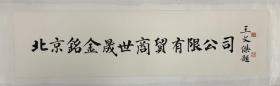 北京銘金晟世商貿有限公司
王文傑題